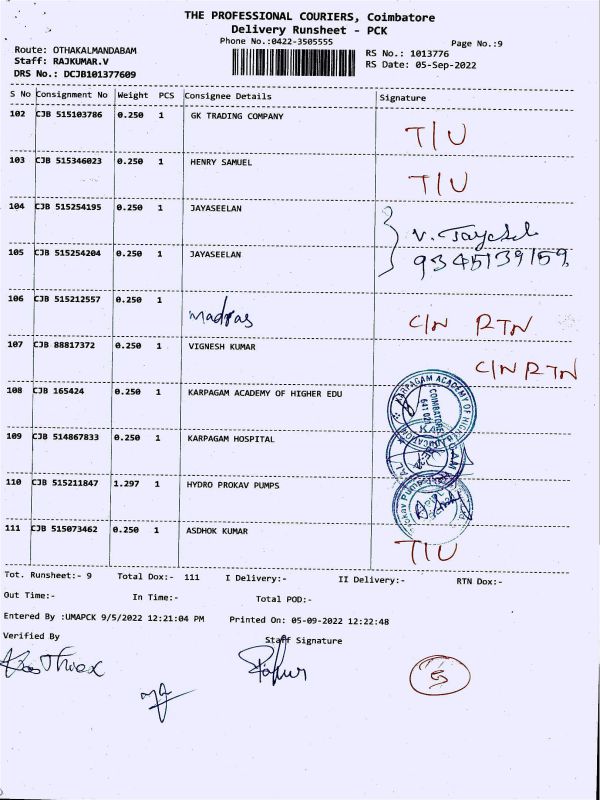 THE PROFESSIONAL COURIERS, Coimbatore
Delivery Runsheet - PCK
Phone No.:0422-3505555
Page No.:9
Route: OTHAKALMANDABAM
Staff: RAJKUMAR.V
DRS No.: DCJB101377609
RS No.: 1013776
RS Date: 05-Sep-2022
S No Consignment No Weight PCS Consignee Details Signature
102 CJB 515103786 0.250 1 GK TRADING COMPANY T/U
103 CJB 515346023 0.250 1 HENRY SAMUEL T/U
104 CJB 515254195 0.250 1 JAYASEELAN V.
105 CJB 515254204 0.250 1 JAYASEELAN 9345139159
106 CJB 515212557 0.250 1 Madras C/N RTN
107 CJB 88817372 0.250 1 VIGNESH KUMAR C/N RTN
108 CJB 165424 0.250 1 KARPAGAM ACADEMY OF HIGHER EDU KARPAGAM ACADEMY OF HIGHER EDUCATION COIMBATORE 641 021
109 CJB 514867833 0.250 1 KARPAGAM HOSPITAL
110 CJB 515211847 1.297 1 HYDRO PROKAV PUMPS
111 CJB 515073462 0.250 1 ASDHOK KUMAR T/U
Tot. Runsheet:- 9 Total Dox:- 111 I Delivery:- II Delivery:- RTN Dox:-
Out Time:- In Time:- Total POD:-
Entered By :UMAPCK 9/5/2022 12:21:04 PM Printed On: 05-09-2022 12:22:48
Verified By Staff Signature
5